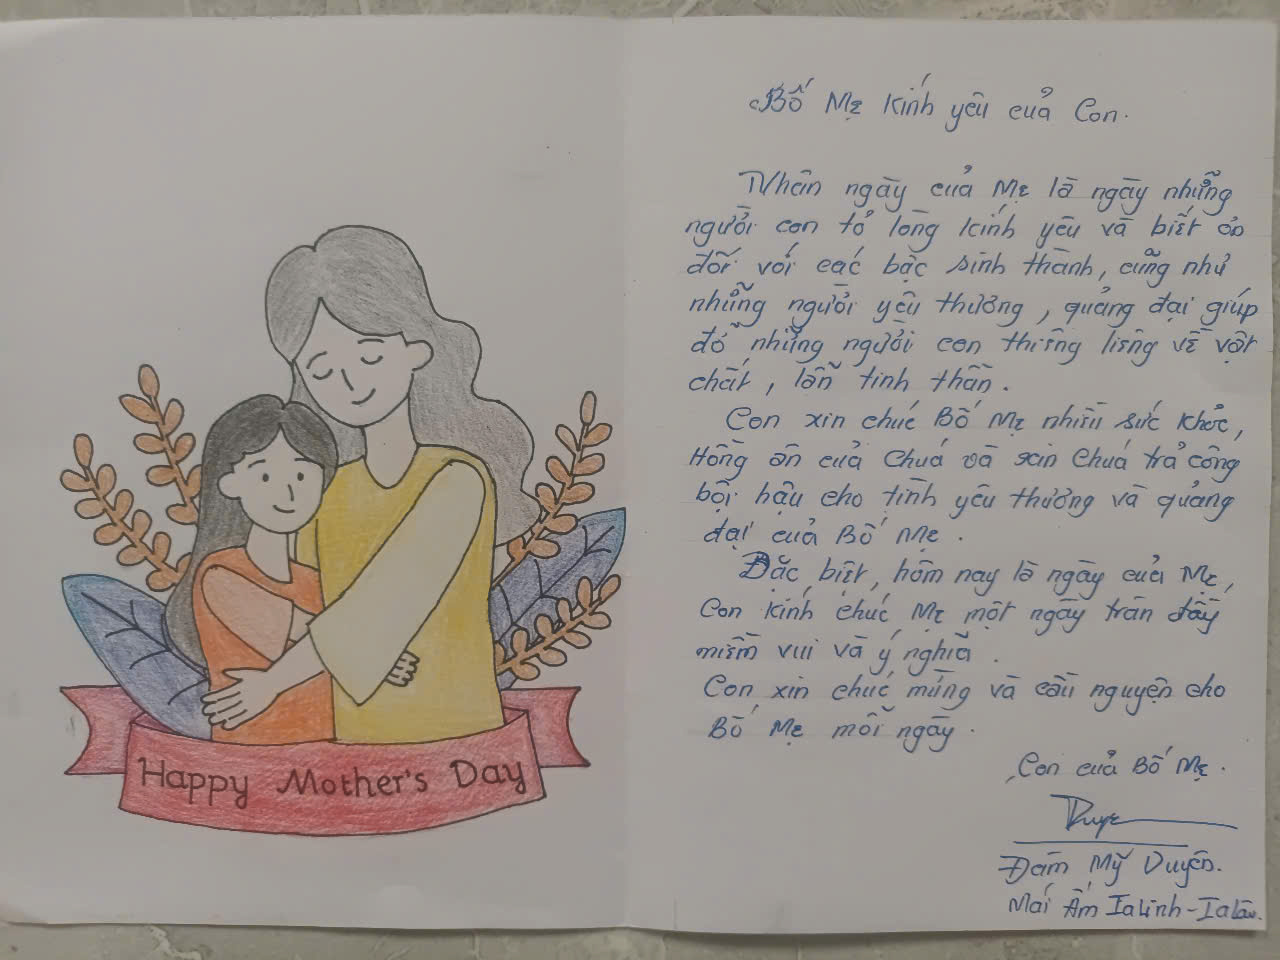 Happy Mother's Day
Bố Mẹ kính yêu của Con.
Nhân ngày của Mẹ là ngày những
người con tỏ lòng kính yêu và biết ơn
đối với các bậc sinh thành, cũng như
những người yêu thương, quảng đại giúp
đỡ những người con thiêng liêng về vật
chất, lẫn tinh thần.
Con xin chúc Bố Mẹ nhiều sức khỏe,
Hồng ân của Chúa và xin Chúa trả công
bội hậu cho tình yêu thương và quảng
đại của Bố Mẹ.
Đặc biệt, hôm nay là ngày của Mẹ,
Con kính chúc Mẹ một ngày tràn đầy
niềm vui và ý nghĩa.
Con xin chúc mừng và cầu nguyện cho
Bố Mẹ mỗi ngày.
Con của Bố Mẹ.
Đàm Mỹ Duyên.
Mái Ấm